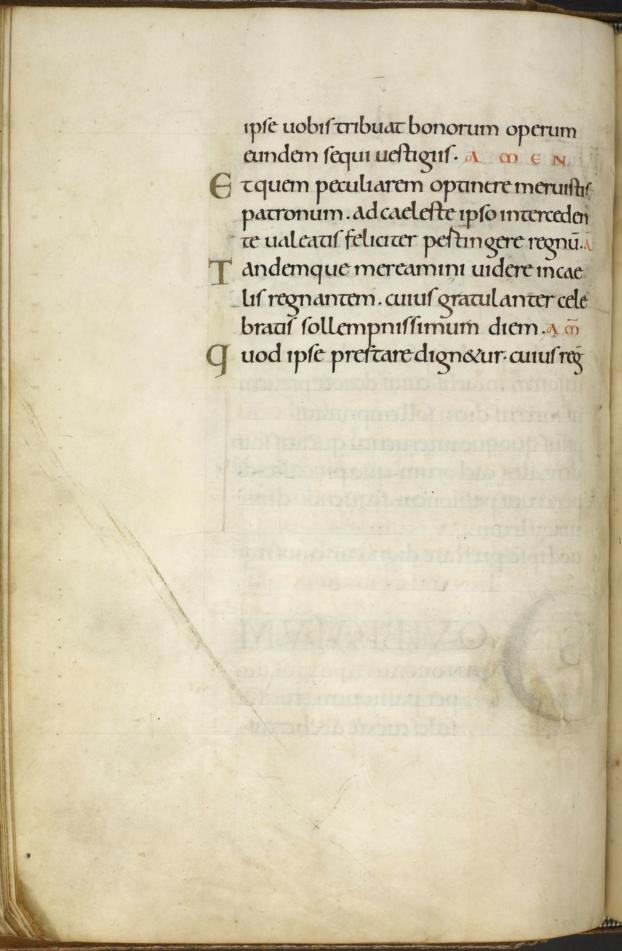 ipse uobis tribuat bonorum operum
eundem sequi uestigiis. A M E N
Et quem peculiarem optinere meruistis
patronum. ad caeleste ipso interceden
te ualeatis feliciter pestingere regnū. A
Tandemque mereamini uidere in cae
lis regnantem. cuius gratulanter cele
bratis sollempnissimum diem. A M̄
Quod ipse prestare dign&ur. cuius reg̅